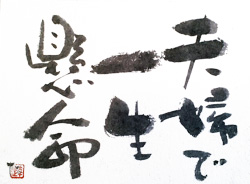 夫婦で
一生
懸命